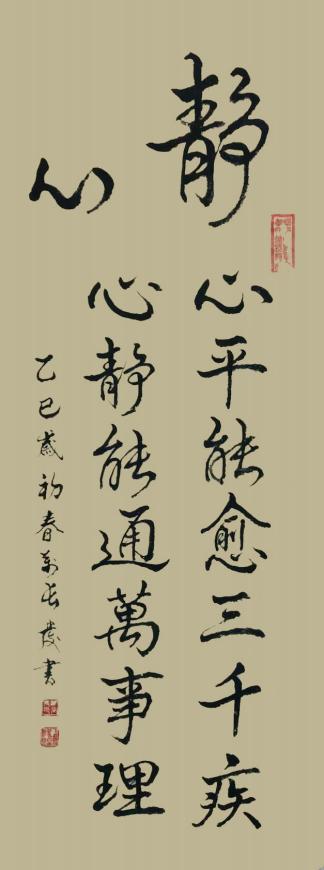 靜心
心平能愈三千疾
心靜能通萬事理
乙巳歲初春萬長發書